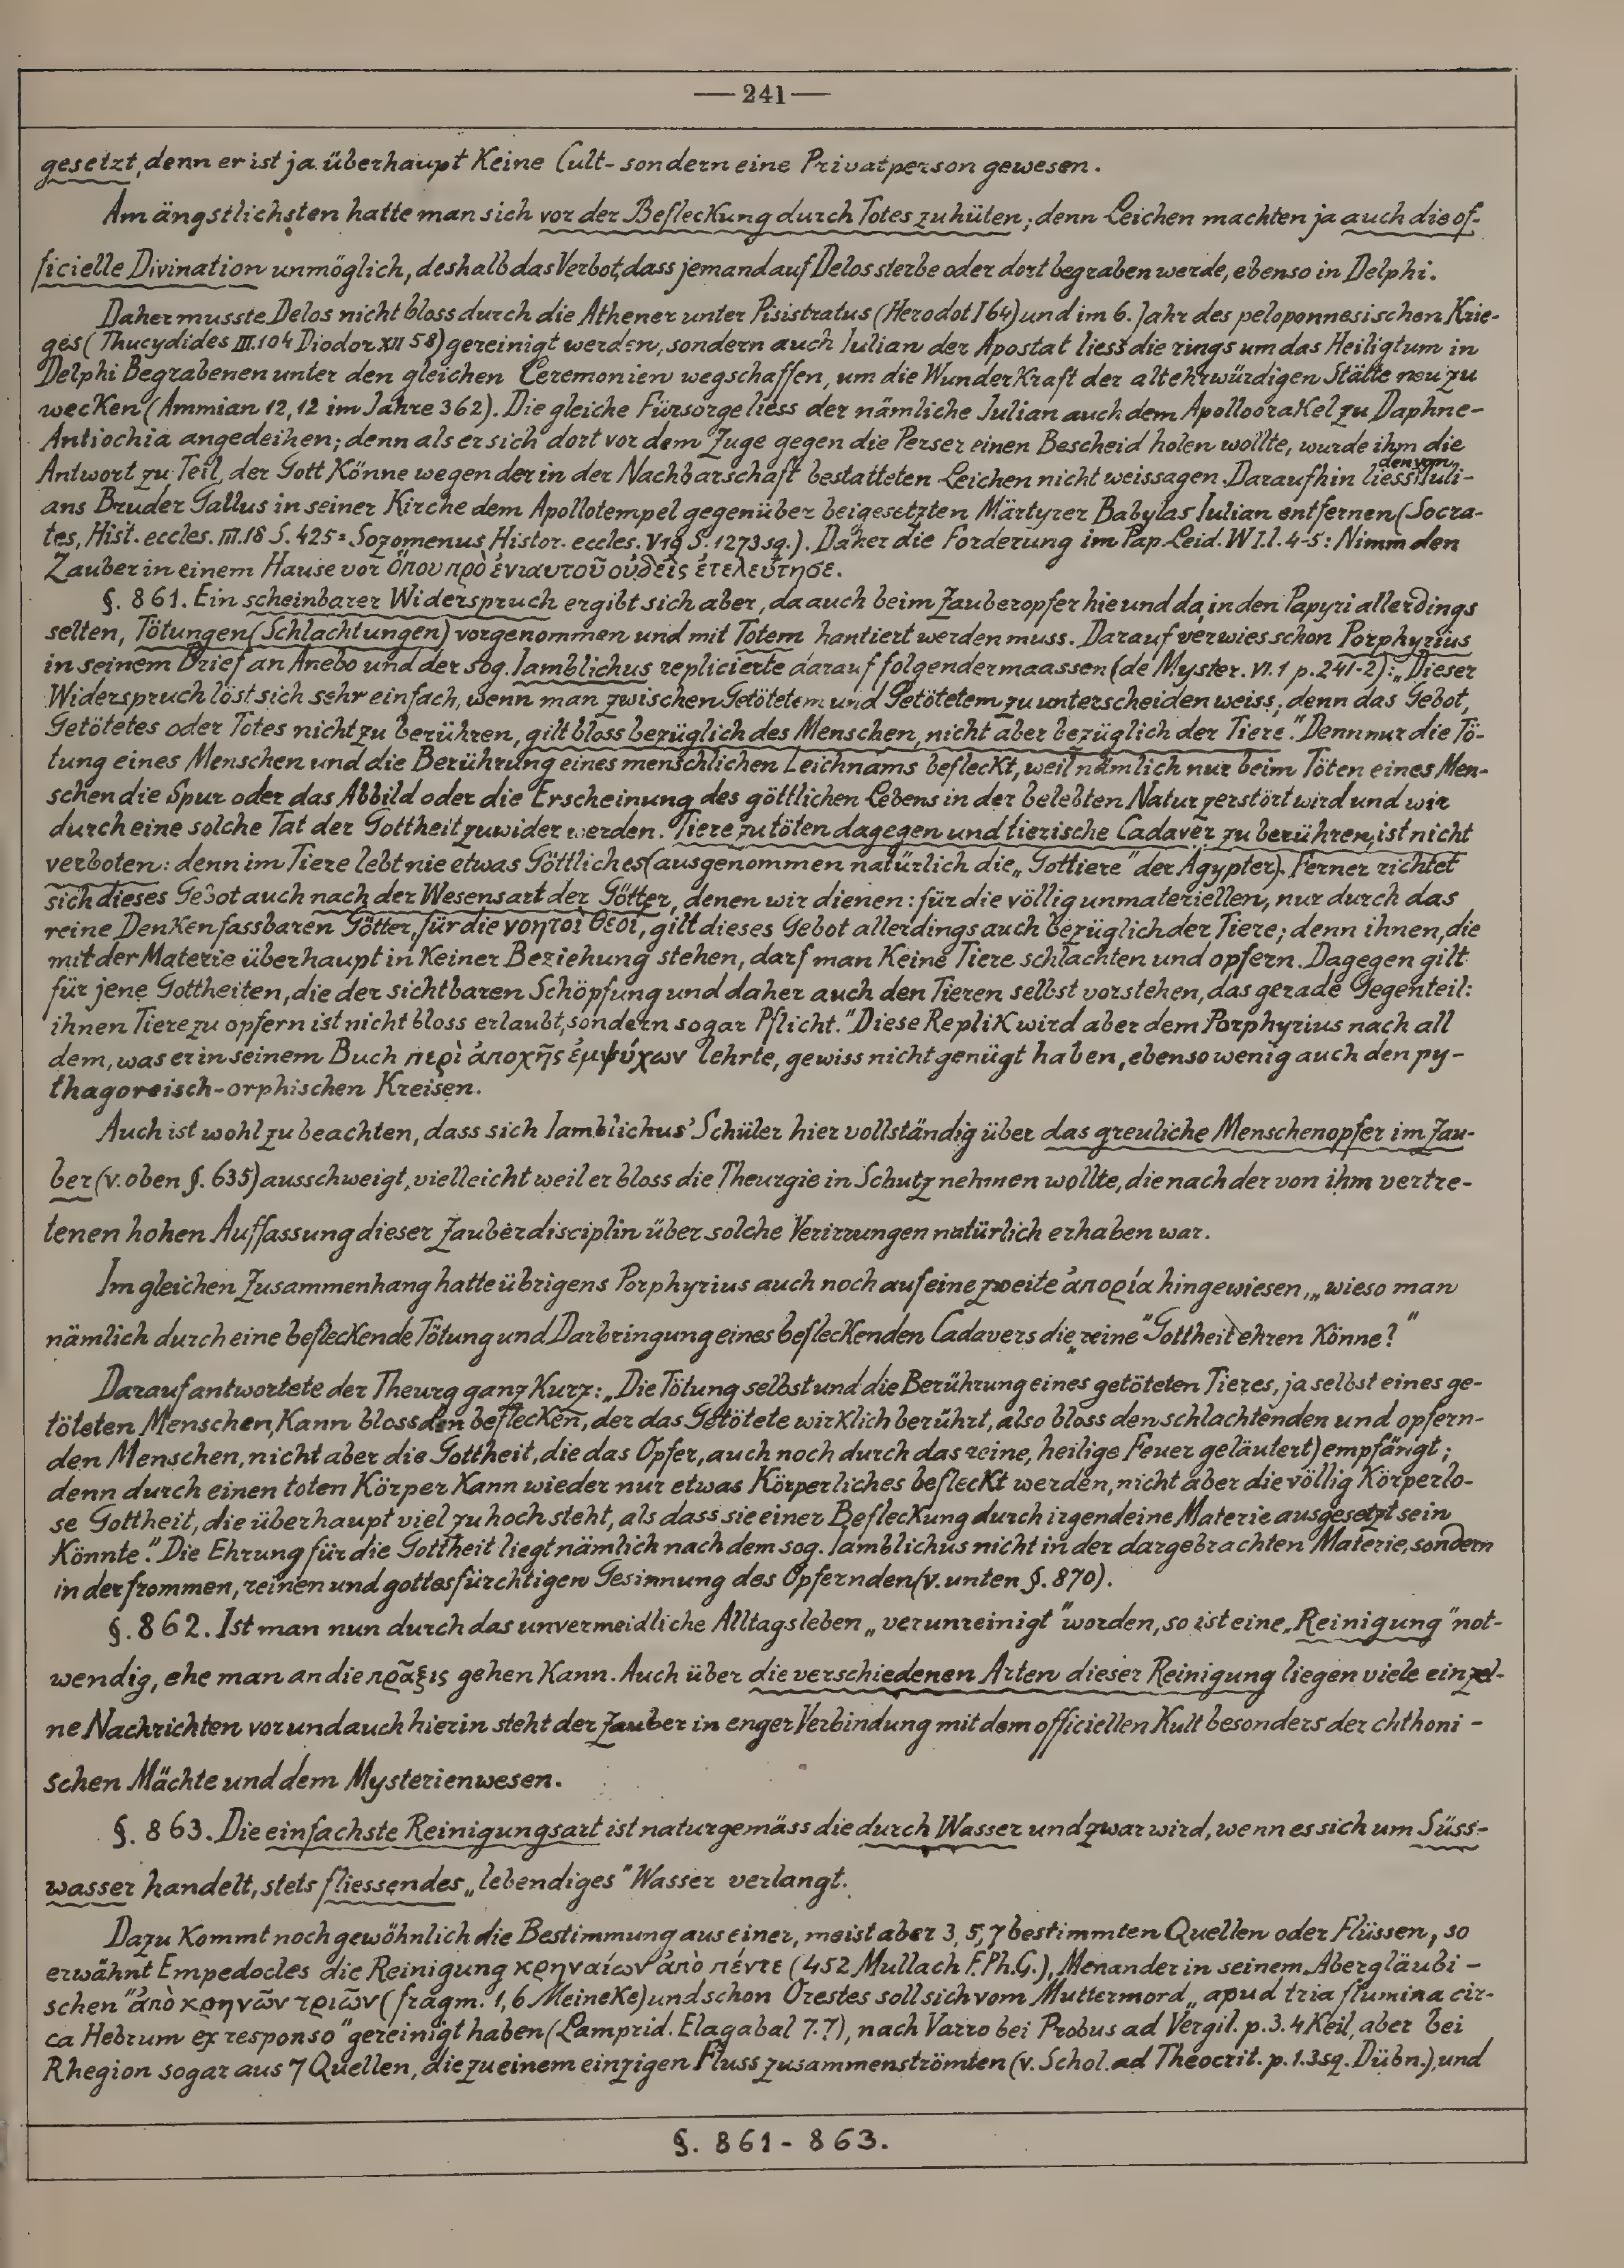 — 241 —
gesetzt, denn er ist ja überhaupt keine Cult- sondern eine Privatperson gewesen.
Am ängstlichsten hatte man sich vor der Befleckung durch Totes zu hüten; denn Leichen machten ja auch die of-
ficielle Divination unmöglich, deshalb das Verbot, dass jemand auf Delos sterbe oder dort begraben werde, ebenso in Delphi.
Daher musste Delos nicht bloss durch die Athener unter Pisistratus (Herodot I 64) und im 6. Jahr des peloponnesischen Krie-
ges (Thucydides III.104 Diodor XII 58) gereinigt werden, sondern auch Iulian der Apostat liess die rings um das Heiligtum in
Delphi Begrabenen unter den gleichen Ceremonien wegschaffen, um die Wunderkraft der altehrwürdigen Stätte neu zu
wecken (Ammian 12,12 im Jahre 362). Die gleiche Fürsorge liess der nämliche Julian auch dem Apolloorakel zu Daphne-
Antiochia angedeihen; denn als er sich dort vor dem Zuge gegen die Perser einen Bescheid holen wollte, wurde ihm die
Antwort zu Teil, der Gott könne wegen der in der Nachbarschaft bestatteten Leichen nicht weissagen. Daraufhin liess den von Iuli-
ans Bruder Gallus in seiner Kirche dem Apollotempel gegenüber beigesetzten Märtyrer Babylas Iulian entfernen (Socra-
tes, Hist. eccles. III.18 S. 425 = Sozomenus, Histor. eccles. V 19 S. 1273 sq.). Daher die Forderung im Pap. Leid. W I.l. 4-5: Nimm den
Zauber in einem Hause vor ὅπου πρὸ ἐνιαυτοῦ οὐδεὶς ἐτελεύτησε.
§. 861. Ein scheinbarer Widerspruch ergibt sich aber, da auch beim Zauberopfer hie und da, in den Papyri allerdings
selten, Tötungen (Schlachtungen) vorgenommen und mit Totem hantiert werden muss. Darauf verwies schon Porphyrius
in seinem Brief an Anebo und der sog. Iamblichus replicierte darauf folgendermaassen (de Myster. VI.1 p. 241-2): „Dieser
Widerspruch löst sich sehr einfach, wenn man zwischen Getötetem und Getötetem zu unterscheiden weiss; denn das Gebot,
Getötetes oder Totes nicht zu berühren, gilt bloss bezüglich des Menschen, nicht aber bezüglich der Tiere." Denn nur die Tö-
tung eines Menschen und die Berührung eines menschlichen Leichnams befleckt, weil nämlich nur beim Töten eines Men-
schen die Spur oder das Abbild oder die Erscheinung des göttlichen Lebens in der belebten Natur zerstört wird und wir
durch eine solche Tat der Gottheit zuwider werden. Tiere zu töten dagegen und tierische Cadaver zu berühren, ist nicht
verboten: denn im Tiere lebt nie etwas Göttliches (ausgenommen natürlich die „Gottiere" der Ägypter). Ferner richtet
sich dieses Gebot auch nach der Wesensart der Götter, denen wir dienen: für die völlig unmateriellen, nur durch das
reine Denken fassbaren Götter, für die νοητοὶ θεοί, gilt dieses Gebot allerdings auch bezüglich der Tiere; denn ihnen, die
mit der Materie überhaupt in keiner Beziehung stehen, darf man keine Tiere schlachten und opfern. Dagegen gilt
für jene Gottheiten, die der sichtbaren Schöpfung und daher auch den Tieren selbst vorstehen, das gerade Gegenteil:
ihnen Tiere zu opfern ist nicht bloss erlaubt, sondern sogar Pflicht." Diese Replik wird aber dem Porphyrius nach all
dem, was er in seinem Buch περὶ ἀποχῆς ἐμψύχων lehrte, gewiss nicht genügt haben, ebenso wenig auch den py-
thagoreisch-orphischen Kreisen.
Auch ist wohl zu beachten, dass sich Iamblichus' Schüler hier vollständig über das greuliche Menschenopfer im Zau-
ber (v. oben §. 635) ausschweigt, vielleicht weil er bloss die Theurgie in Schutz nehmen wollte, die nach der von ihm vertre-
tenen hohen Auffassung dieser Zauberdisciplin über solche Verirrungen natürlich erhaben war.
Im gleichen Zusammenhang hatte übrigens Porphyrius auch noch auf eine zweite ἀπορία hingewiesen, „wieso man
nämlich durch eine befleckende Tötung und Darbringung eines befleckenden Cadavers die „reine" Gottheit ehren könne?"
Darauf antwortete der Theurg ganz kurz: „Die Tötung selbst und die Berührung eines getöteten Tieres, ja selbst eines ge-
töteten Menschen, kann bloss den beflecken, der das Getötete wirklich berührt, also bloss den schlachtenden und opfern-
den Menschen, nicht aber die Gottheit, die das Opfer, auch noch durch das reine, heilige Feuer geläutert) empfängt;
denn durch einen toten Körper kann wieder nur etwas Körperliches befleckt werden, nicht aber die völlig körperlo-
se Gottheit, die überhaupt viel zu hoch steht, als dass sie einer Befleckung durch irgendeine Materie ausgesetzt sein
könnte." Die Ehrung für die Gottheit liegt nämlich nach dem sog. Iamblichus nicht in der dargebrachten Materie, sondern
in der frommen, reinen und gottesfürchtigen Gesinnung des Opfernden (v. unten §. 870).
§. 862. Ist man nun durch das unvermeidliche Alltagsleben „verunreinigt" worden, so ist eine „Reinigung" not-
wendig, ehe man an die πρᾶξις gehen kann. Auch über die verschiedenen Arten dieser Reinigung liegen viele einzel-
ne Nachrichten vor und auch hierin steht der Zauber in enger Verbindung mit dem officiellen Kult besonders der chthoni-
schen Mächte und dem Mysterienwesen.
§. 863. Die einfachste Reinigungsart ist naturgemäss die durch Wasser und zwar wird, wenn es sich um Süss-
wasser handelt, stets fliessendes „lebendiges" Wasser verlangt.
Dazu kommt noch gewöhnlich die Bestimmung aus einer, meist aber 3, 5, 7 bestimmten Quellen oder Flüssen, so
erwähnt Empedocles die Reinigung κρηναίων ἀπὸ πέντε (452 Mullach F.Ph.G.), Menander in seinem „Abergläubi-
schen" ἀπὸ κρηνῶν τριῶν (fragm. 1,6 Meineke) und schon Orestes soll sich vom Muttermord „apud tria flumina cir-
ca Hebrum ex responso" gereinigt haben (Lamprid. Elagabal 7.7), nach Varro bei Probus ad Vergil. p. 3.4 Keil, aber bei
Rhegion sogar aus 7 Quellen, die zu einem einzigen Fluss zusammenströmten (v. Schol. ad Theocrit. p. 1.3 sq. Dübn.), und
§. 861 - 863.